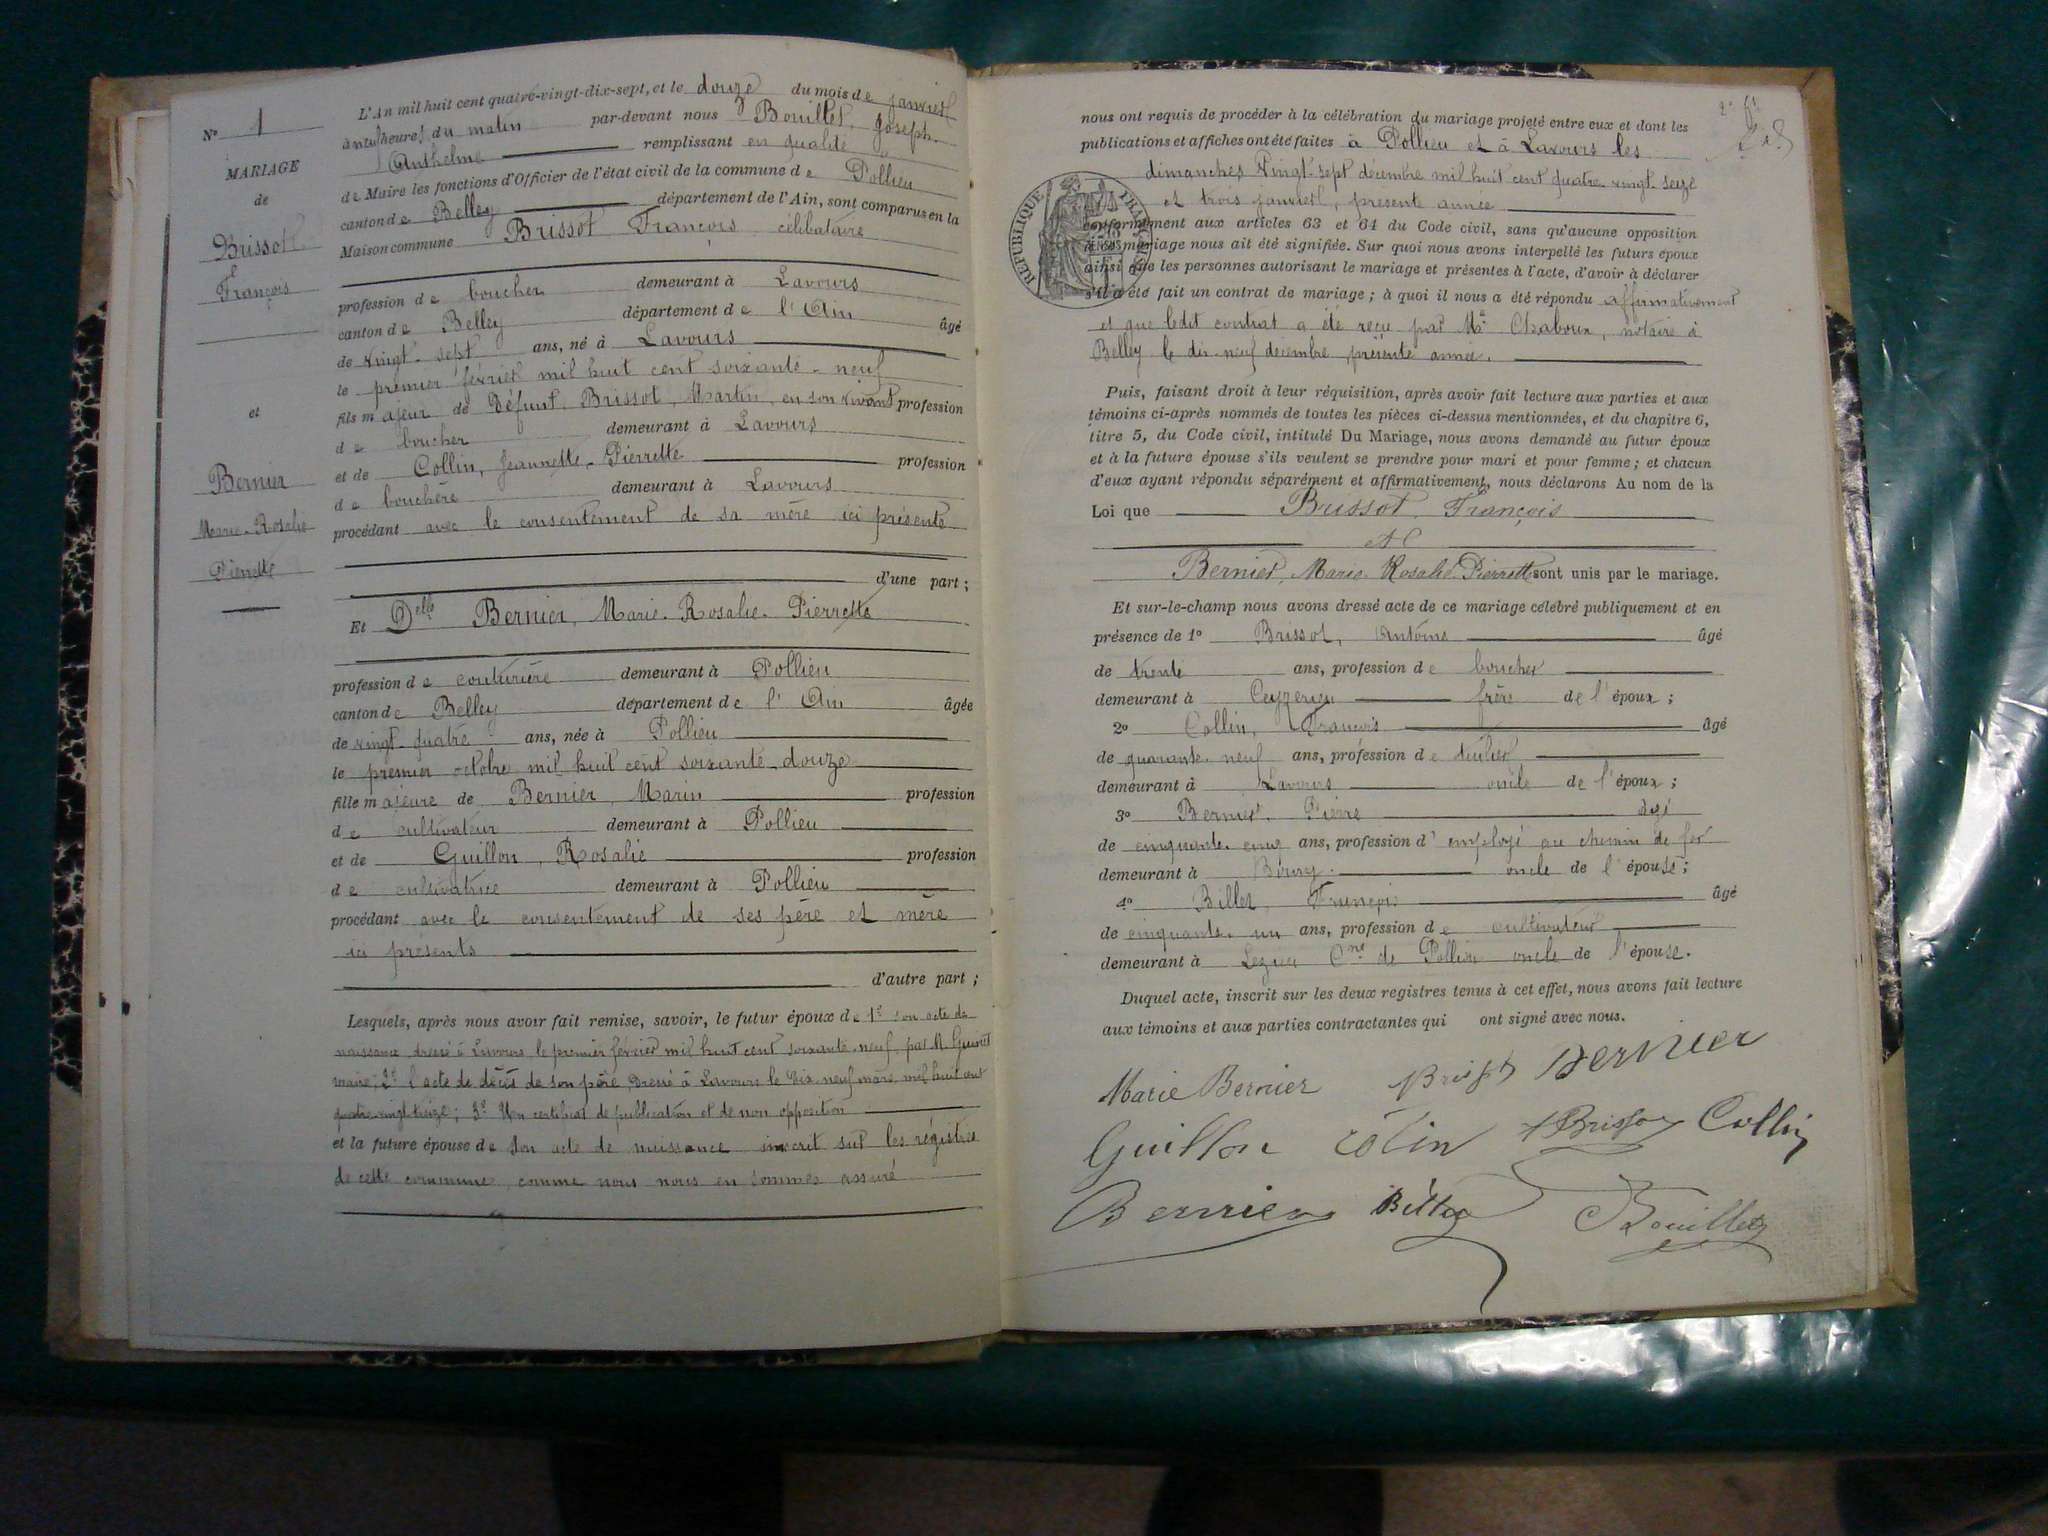 N° 1
MARIAGE
de
Brissot
François
et
Bernier
Marie-Rosalie
Pierrette
L'An mil huit cent quatre-vingt-dix-sept, et le douze du mois de janvier
à neuf heures du matin par-devant nous Bouillet, Joseph
Anthelme remplissant en qualité
de Maire les fonctions d'Officier de l'état civil de la commune de Pollieu
canton de Belley département de l'Ain, sont comparus en la
Maison commune Brissot François célibataire
profession de boucher demeurant à Lavours
canton de Belley département de l'Ain âgé
de vingt-sept ans, né à Lavours
le premier février mil huit cent soixante-neuf
fils majeur de Défunt Brissot, Martin, en son vivant profession
de boucher demeurant à Lavours
et de Collin, Jeannette-Pierrette profession
de bouchère demeurant à Lavours
procédant avec le consentement de sa mère ici présente
d'une part ;
Et Delle Bernier, Marie-Rosalie-Pierrette
profession de couturière demeurant à Pollieu
canton de Belley département de l'Ain âgée
de vingt-quatre ans, née à Pollieu
le premier octobre mil huit cent soixante-douze
fille majeure de Bernier, Marin profession
de cultivateur demeurant à Pollieu
et de Guillon, Rosalie profession
de cultivatrice demeurant à Pollieu
procédant avec le consentement de ses père et mère
ici présents
d'autre part ;
Lesquels, après nous avoir fait remise, savoir, le futur époux de 1° son acte de
naissance dressé à Lavours le premier février mil huit cent soixante-neuf, par M.
maire; 2° l'acte de décès de son père dressé à Lavours le dix-neuf mars mil huit cent
quatre-vingt-treize; 3° Un certificat de publication et de non opposition
et la future épouse de son acte de naissance inscrit sur les régistres
de cette commune comme nous nous en sommes assuré
nous ont requis de procéder à la célébration du mariage projeté entre eux et dont les
publications et affiches ont été faites à Pollieu et à Lavours les
dimanches Vingt-sept décembre mil huit cent quatre-vingt seize
et trois janvier, présente année
RÉPUBLIQUE FRANÇAISE
conformément aux articles 63 et 64 du Code civil, sans qu'aucune opposition
à ce mariage nous ait été signifiée. Sur quoi nous avons interpellé les futurs époux
ainsi que les personnes autorisant le mariage et présentes à l'acte, d'avoir à déclarer
s'il a été fait un contrat de mariage ; à quoi il nous a été répondu affirmativement
et que ledit contrat a été reçu par Me Chaboux, notaire à
Belley le dix-neuf décembre, présente année.
Puis, faisant droit à leur réquisition, après avoir fait lecture aux parties et aux
témoins ci-après nommés de toutes les pièces ci-dessus mentionnées, et du chapitre 6,
titre 5, du Code civil, intitulé Du Mariage, nous avons demandé au futur époux
et à la future épouse s'ils veulent se prendre pour mari et pour femme ; et chacun
d'eux ayant répondu séparément et affirmativement, nous déclarons Au nom de la
Loi que Brissot François
et
Bernier, Marie-Rosalie-Pierrette sont unis par le mariage.
Et sur-le-champ nous avons dressé acte de ce mariage célébré publiquement et en
présence de 1° Brissot, Antoine âgé
de trente ans, profession de boucher
demeurant à Ceyzerieu frère de l'époux ;
2° Collin, François âgé
de quarante-neuf ans, profession de tuilier
demeurant à Lavours oncle de l'époux ;
3° Bernier, Pierre âgé
de cinquante-cinq ans, profession d'employé au chemin de fer
demeurant à oncle de l'épouse ;
4° Billet, François âgé
de cinquante-un ans, profession de cultivateur
demeurant à Cne de Pollieu oncle de l'épouse.
Duquel acte, inscrit sur les deux registres tenus à cet effet, nous avons fait lecture
aux témoins et aux parties contractantes qui ont signé avec nous.
Marie Bernier Brissot Bernier
Guillon Colin Brissot Collin
Bernier Billet Bouillet